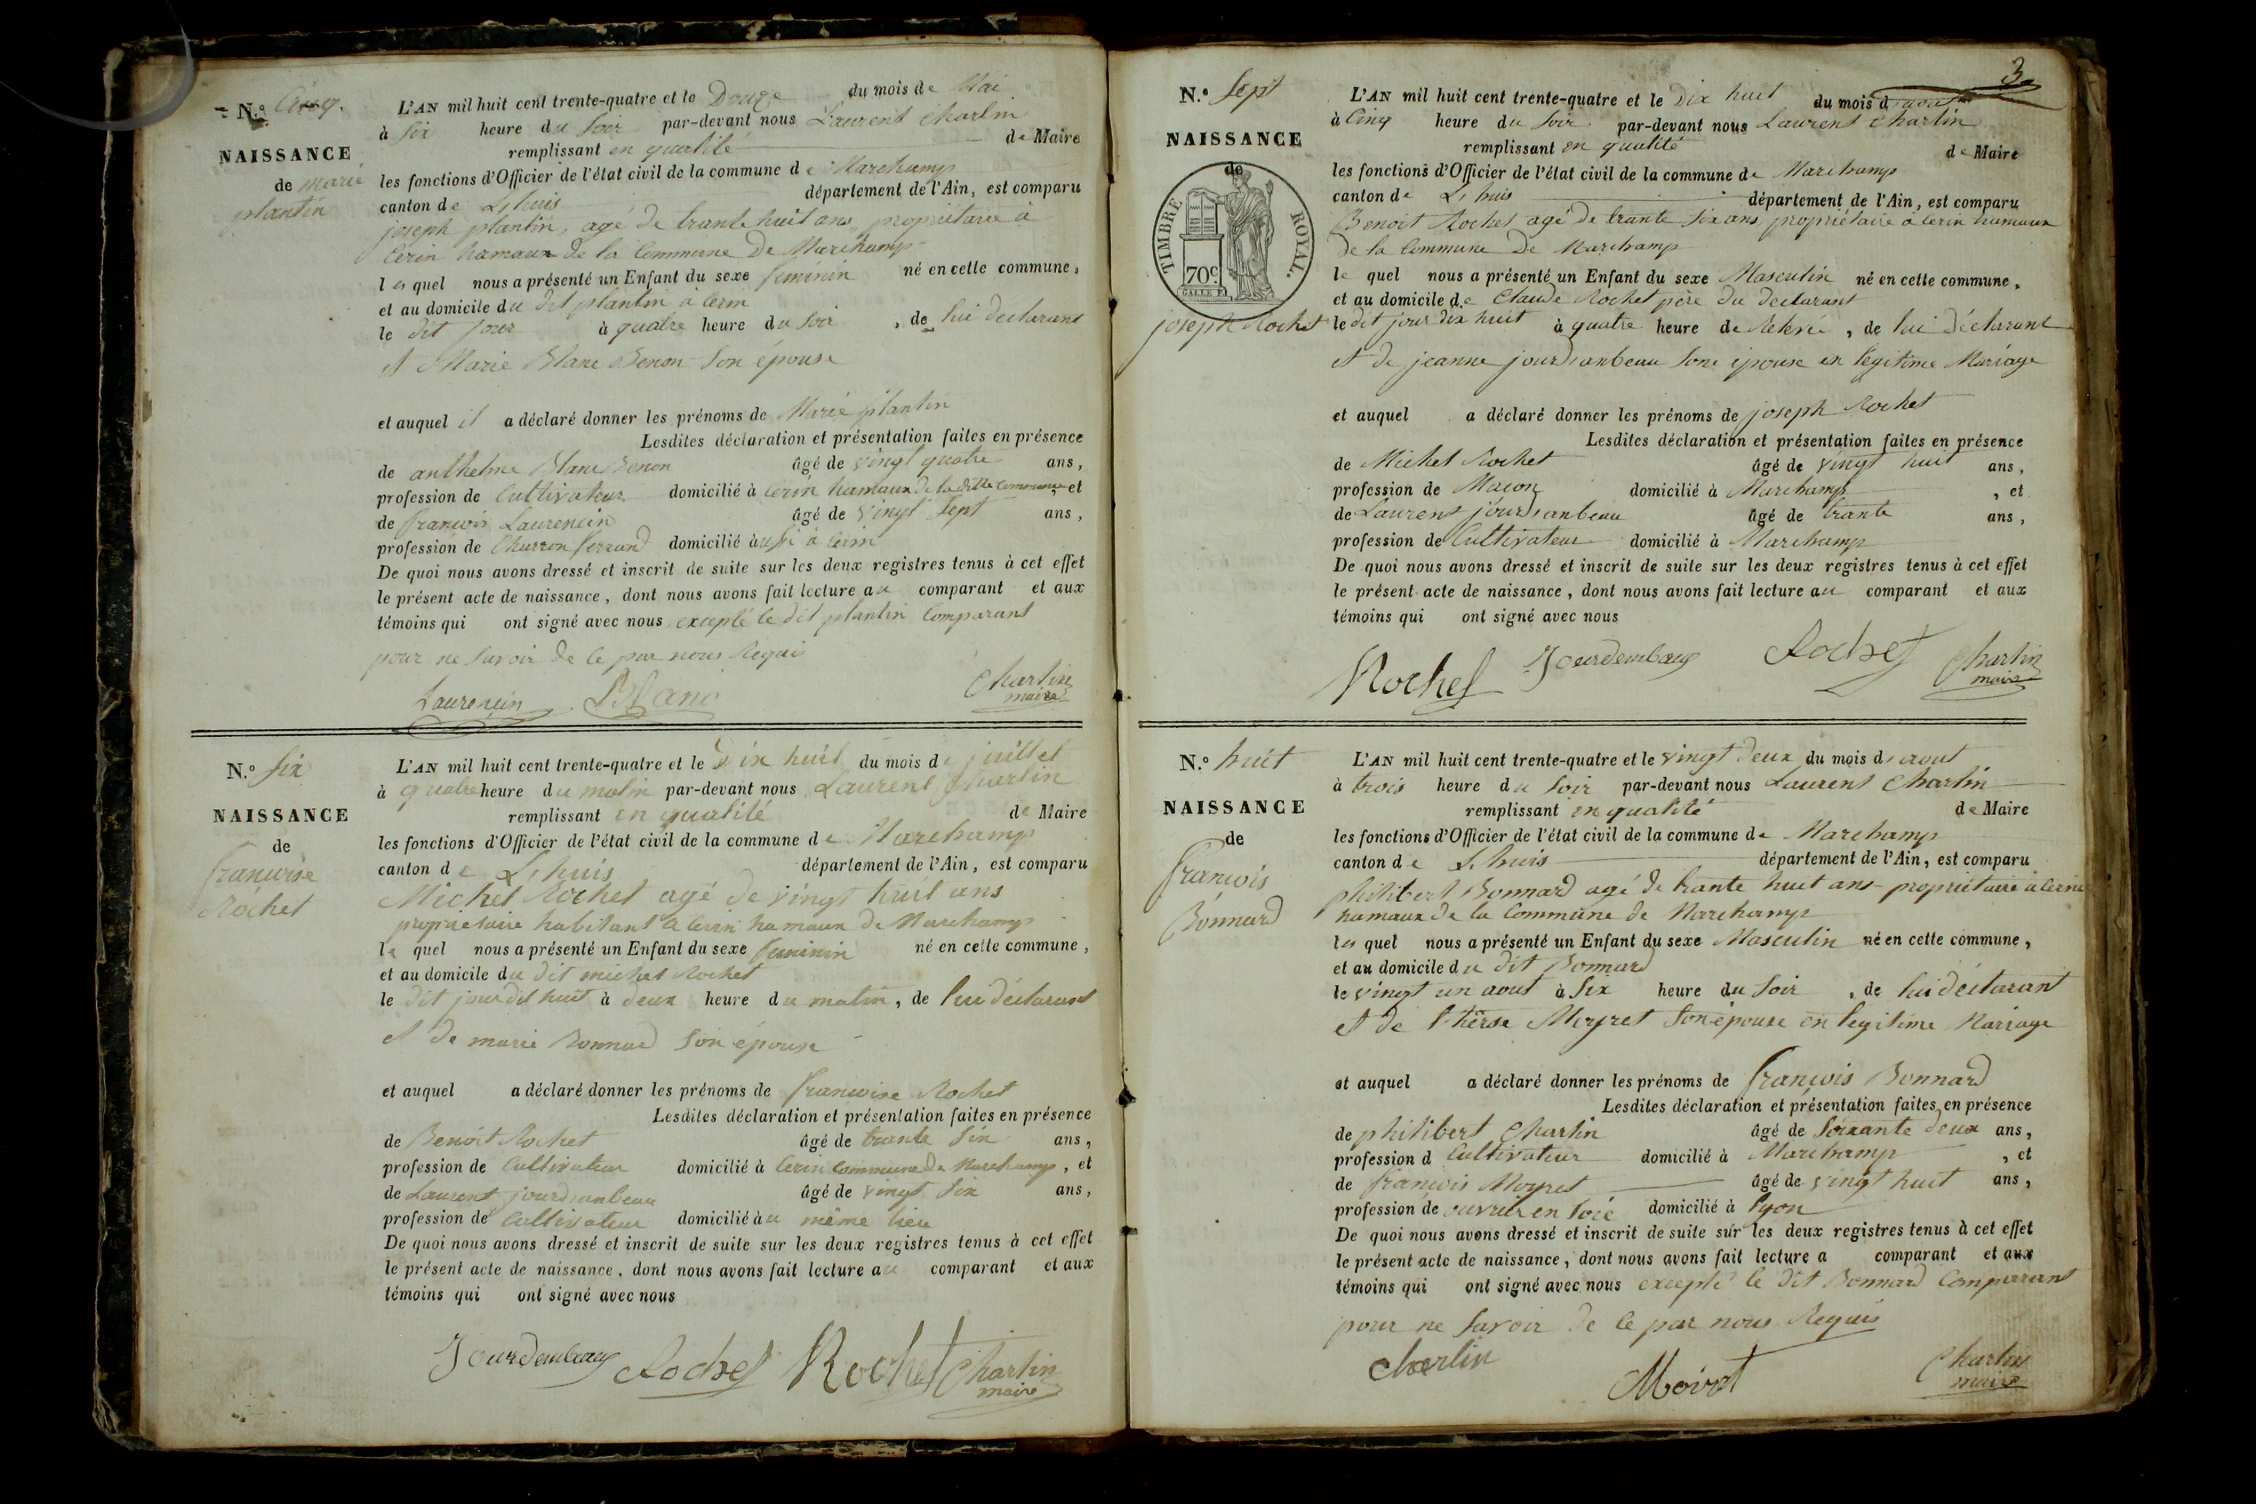 N.o Cinq.
NAISSANCE
de Marie
plantin
L'AN mil huit cent trente-quatre et le Douze du mois de Mai
à Six heure du Soir par-devant nous Laurent Charlin
remplissant en qualité de Maire
les fonctions d'Officier de l'état civil de la commune de Marchamp
canton de L'huis département de l'Ain, est comparu
joseph plantin, agé de trante huit ans, propriétaire à
Cerin hamaux de la Commune De Marchamp
les quel nous a présenté un Enfant du sexe feminin né en cette commune,
et au domicile du dit plantin à Cerin
le dit Jour à quatre heure du Soir, de lui declarant
et Marie Blanc Benon Son épouse
et auquel il a déclaré donner les prénoms de Marie plantin
Lesdites déclaration et présentation faites en présence
de anthelme Blanc Benon âgé de vingt quatre ans,
profession de Cultivateur domicilié à Cerin hamaux de la ditte Commune, et
de francois Laurencin âgé de vingt Sept ans,
profession de Charron ferrand domicilié aussi à Cerin
De quoi nous avons dressé et inscrit de suite sur les deux registres tenus à cet effet
le présent acte de naissance, dont nous avons fait lecture au comparant et aux
témoins qui ont signé avec nous excepté le dit plantin Comparant
pour ne Savoir de Ce par nous Requis
Laurencin Blanc Charlin
maire
N.o Six
NAISSANCE
de
francoise
Rochet
L'AN mil huit cent trente-quatre et le Dix huit du mois de juillet
à quatre heure du matin par-devant nous Laurent Charlin
remplissant en qualité de Maire
les fonctions d'Officier de l'état civil de la commune de Marchamp
canton de L'huis département de l'Ain, est comparu
Michel Rochet agé de vingt huit ans
propriétaire habitant à Cerin hamaux de Marchamp
le quel nous a présenté un Enfant du sexe feminin né en cette commune,
et au domicile du dit michel Rochet
le dit jour dix huit à deux heure du matin, de lui déclarant
et de marie Bonnard Son épouse
et auquel a déclaré donner les prénoms de francoise Rochet
Lesdites déclaration et présentation faites en présence
de Benoit Rochet âgé de trante Six ans,
profession de Cultivateur domicilié à Cerin Commune de Marchamp, et
de Laurent jourdianbeau âgé de vingt Six ans,
profession de Cultivateur domicilié au même lieu
De quoi nous avons dressé et inscrit de suite sur les deux registres tenus à cet effet
le présent acte de naissance, dont nous avons fait lecture au comparant et aux
témoins qui ont signé avec nous
Jourdembaug Rochet Rochet Charlin
maire
3
N.o Sept
NAISSANCE
de
TIMBRE ROYAL.
70c
joseph Rochet
L'AN mil huit cent trente-quatre et le Dix huit du mois d'aout
à Cinq heure du Soir par-devant nous Laurent Charlin
remplissant en qualité de Maire
les fonctions d'Officier de l'état civil de la commune de Marchamp
canton de L'huis département de l'Ain, est comparu
Benoit Rochet agé de trante Six ans, propriétaire à Cerin hamaux
de la Commune De Marchamp
le quel nous a présenté un Enfant du sexe Masculin né en cette commune,
et au domicile de Claude Rochet père du declarant
le dit jour dix huit à quatre heure de Relevée, de lui déclarant
et de jeanne jourdianbeau Sone épouse en légitime Mariage
et auquel a déclaré donner les prénoms de joseph Rochet
Lesdites déclaration et présentation faites en présence
de Michel Rochet âgé de vingt huit ans,
profession de Macon domicilié à Marchamp, et
de Laurent jourdianbeau âgé de trante ans,
profession de Cultivateur domicilié à Marchamp
De quoi nous avons dressé et inscrit de suite sur les deux registres tenus à cet effet
le présent acte de naissance, dont nous avons fait lecture au comparant et aux
témoins qui ont signé avec nous
Rochet Jourdembaug Rochet Charlin
maire
N.o huit
NAISSANCE
de
francois
Bonnard
L'AN mil huit cent trente-quatre et le vingt deux du mois d'aout
à trois heure du Soir par-devant nous Laurent Charlin
remplissant en qualité de Maire
les fonctions d'Officier de l'état civil de la commune de Marchamp
canton de L'huis département de l'Ain, est comparu
philibert Bonnard agé de trante huit ans propriétaire à Cerin
hamaux de la Commune de Marchamp
les quel nous a présenté un Enfant du sexe Masculin né en cette commune,
et au domicile du dit Bonnard
le vingt un aout à Six heure du Soir, de lui déclarant
et de Therse Moyret Son épouse en légitime Mariage
et auquel a déclaré donner les prénoms de francois Bonnard
Lesdites déclaration et présentation faites en présence
de philibert Charlin âgé de Soixante deux ans,
profession d Cultivateur domicilié à Marchamp, et
de francois Moyret âgé de vingt huit ans,
profession de ouvrier en Soie domicilié à Lyon
De quoi nous avons dressé et inscrit de suite sur les deux registres tenus à cet effet
le présent acte de naissance, dont nous avons fait lecture a comparant et aux
témoins qui ont signé avec nous excepté le dit Bonnard Comparant
pour ne Savoir de Ce par nous Requis
Charlin Moiret Charlin
maire